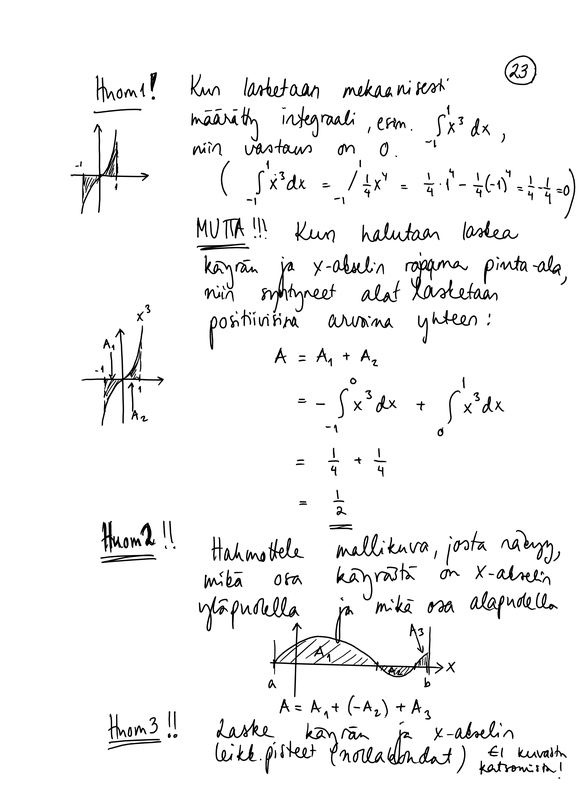 23
Huom1! Kun lasketaan mekaanisesti
määrätty integraali, esim. ∫₋₁¹ x³ dx,
niin vastaus on 0.
( ∫₋₁¹ x³ dx = ₋₁/¹ ¼x⁴ = ¼·1⁴ - ¼(-1)⁴ = ¼ - ¼ = 0 )
-1 1
MUTTA!!! Kun halutaan laskea
käyrän ja x-akselin rajaama pinta-ala,
niin syntyneet alat lasketaan
positiivisina arvoina yhteen:
x³
A₁
-1 1
A₂
A = A₁ + A₂
= - ∫₋₁⁰ x³ dx + ∫₀¹ x³ dx
= ¼ + ¼
= ½
Huom2!! Hahmottele mallikuva, josta näkyy,
mikä osa käyrästä on x-akselin
yläpuolella ja mikä osa alapuolella
A₁ A₂ A₃
a b x
A = A₁ + (-A₂) + A₃
Huom3!! Laske käyrän ja x-akselin
leikk.pisteet (nollakohdat) EI kuvasta
katsomista!